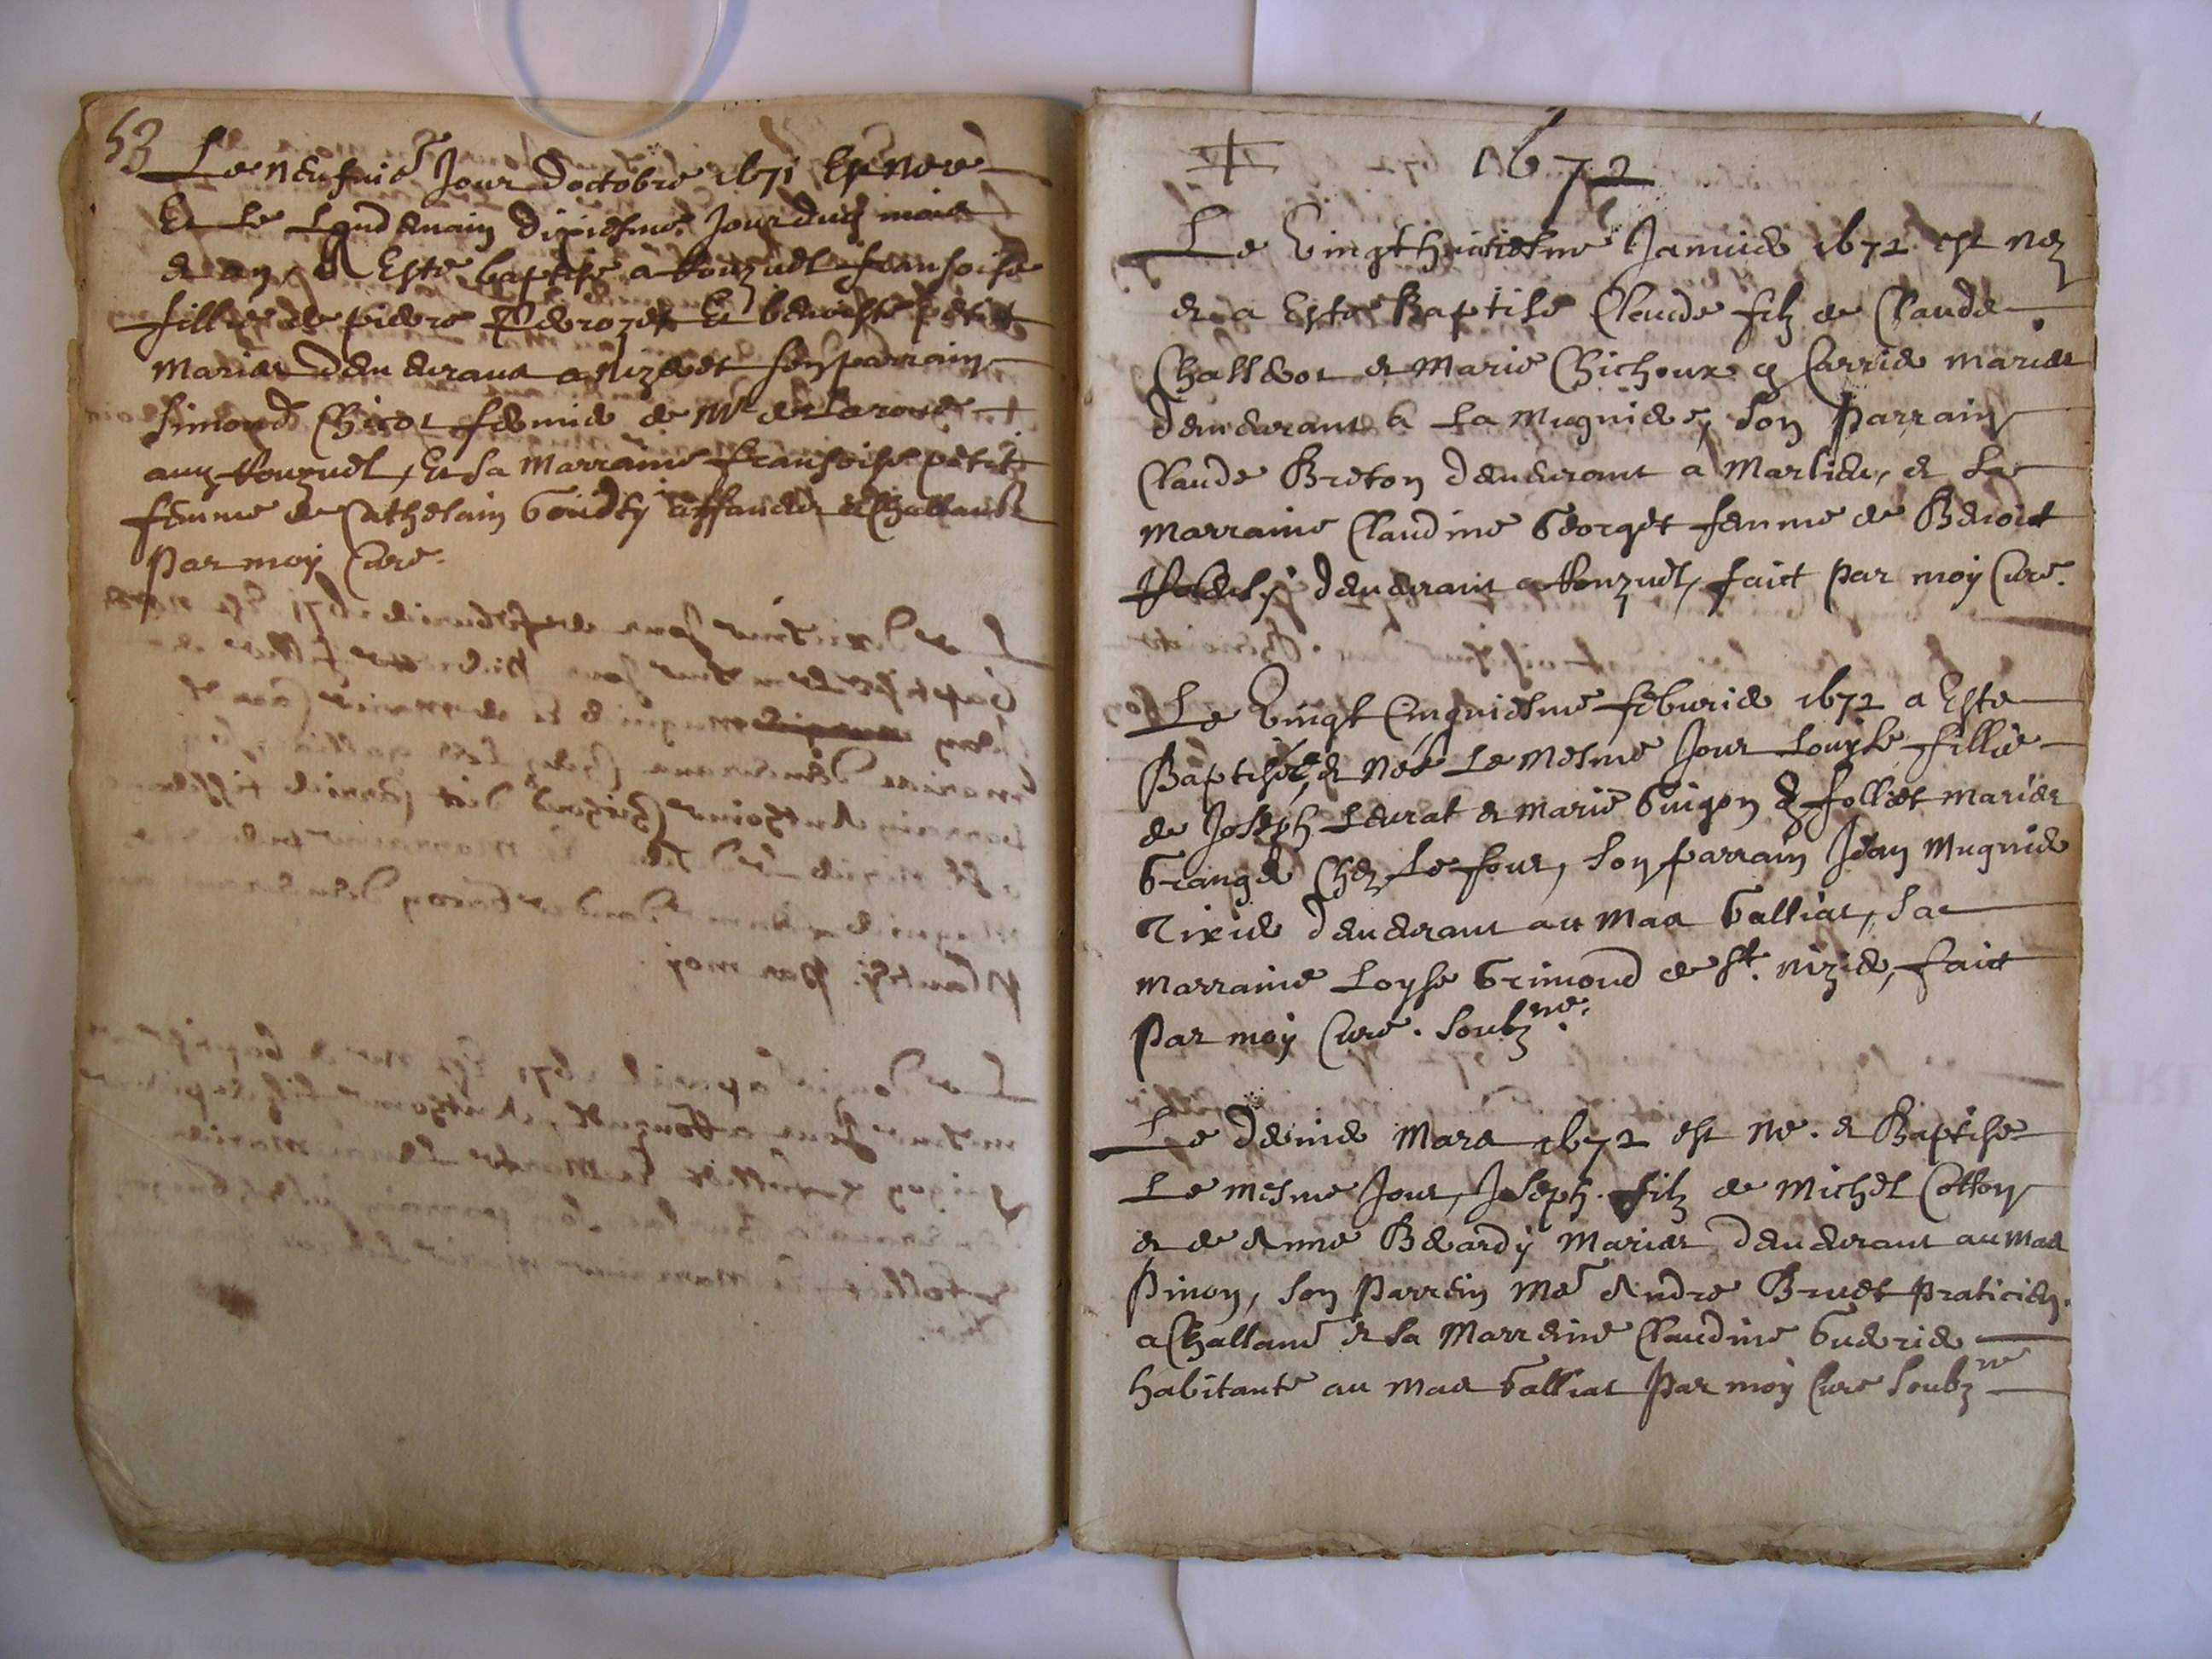 53
Le neufuie Jour doctobre 1671 Est Nee
Et Le Lendemain dixiesme Jour dud mois
et an, a Este baptise a françoise
fillie de pierre Et benoiste petit
Mariés demeurans a son parrain
Simond Chicot fermie de Mr de Laroue
Et sa Marraine françoise petit
femme de Cathelain
Par moy Cure.
1672
Le Vingthuitiesme Januier 1672 est nez
et a Este Baptisé Claude filz de Claude
et Marie Chichoux Mariés
demeurant a La Mugniere, son Parrain
Claude Breton demeurant a Marlieu, et sa
Marraine Claudine Georget femme de Benoit
demeurant a faict par moy Cure.
Le Vingt Cinquiesme feburier 1672 a Este
Baptisée, et Née Le Mesme Jour Louyse fillie
de Joseph Leurat et Marie Guigon folliet mariés
Granger Chez Le four, son parrain Jean Mugnier
Tixier demeurant au Mas Galliat, sa
Marraine Loyse Grimond de St. nizier, faict
Par moy Cure. soubzne.
Le dernier Mars 1672 est Ne. et Baptise
Le mesme Jour, Joseph. filz de Michel Cotton
et de Anne Beardy Mariés demeurant au Mas
Pinon, son Parrein Me Andre Bruet praticien.
a Challamt et sa Marreine Claudine Guerier
habitante au Mas Galliat Par moy Cure soubzne